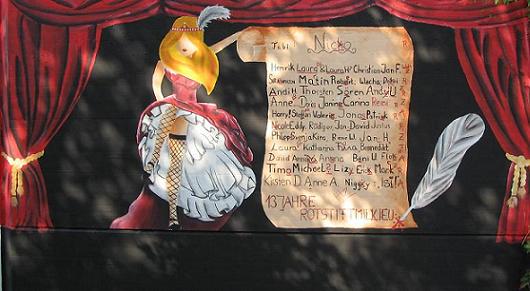 Nicko
Henrik Laura & Laura H. Christian Jan F.
Matin Robert
Andi H Thorsten Sören Andy U
Anne Doris Janine Corina
Harry! Stefan Valerie Jonas Patrick
Nicole Eddy Rüdiger Jan-David Justus
Philipp Svenja Kira René W. Jan H.
Laura Katharina Benedikt
David Annika Angina Beni U.
Timo Michael Lizy Erick Mark
Kirsten D Anne A
13 JAHRE
ROTSTIFTMILIEU